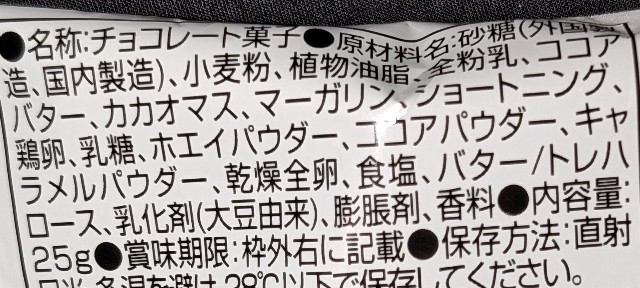 ●名称:チョコレート菓子●原材料名:砂糖(外国製
造、国内製造)、小麦粉、植物油脂、全粉乳、ココア
バター、カカオマス、マーガリン、ショートニング、
鶏卵、乳糖、ホエイパウダー、ココアパウダー、キャ
ラメルパウダー、乾燥全卵、食塩、バター/トレハ
ロース、乳化剤(大豆由来)、膨脹剤、香料●内容量:
25g●賞味期限:枠外右に記載●保存方法:直射
日光、高温を避け28℃以下で保存してください。